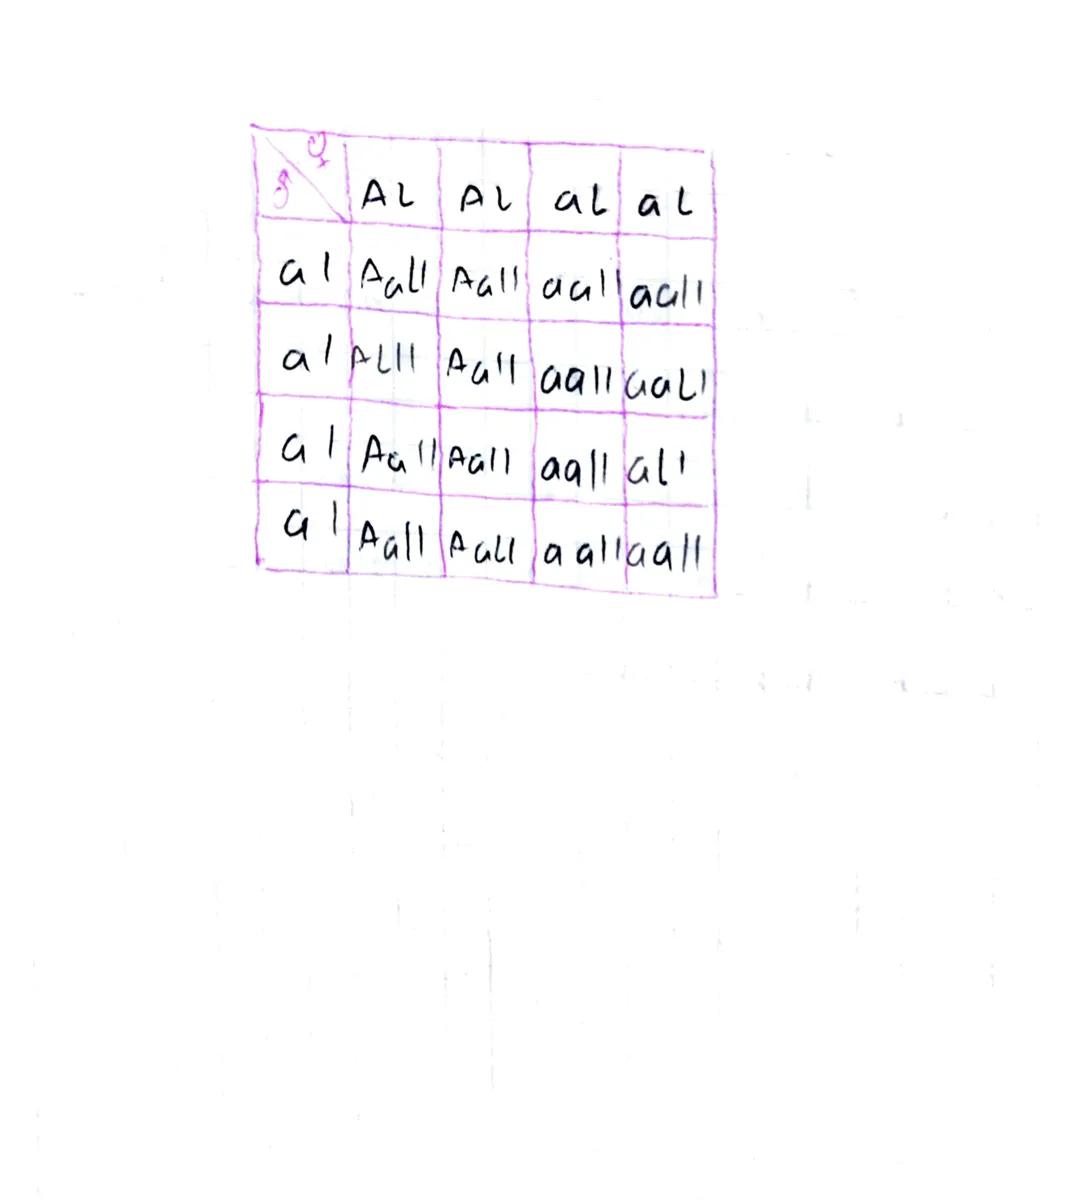 ♀
♂ AL AL aL aL
al AaLl Aall aall aall
al ALll Aall aall aaLl
al Aall Aall aall aLl
al Aall AaLl aall aall